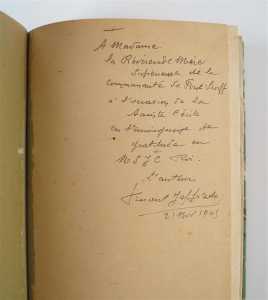 A Madame
la Révérende Mère
Supérieure de la
communauté de
à l'occasion de la
Sainte Cécile
en témoignage de
gratitude en
N S J C Roi.
L'auteur
Vincent
21 Nov 1945